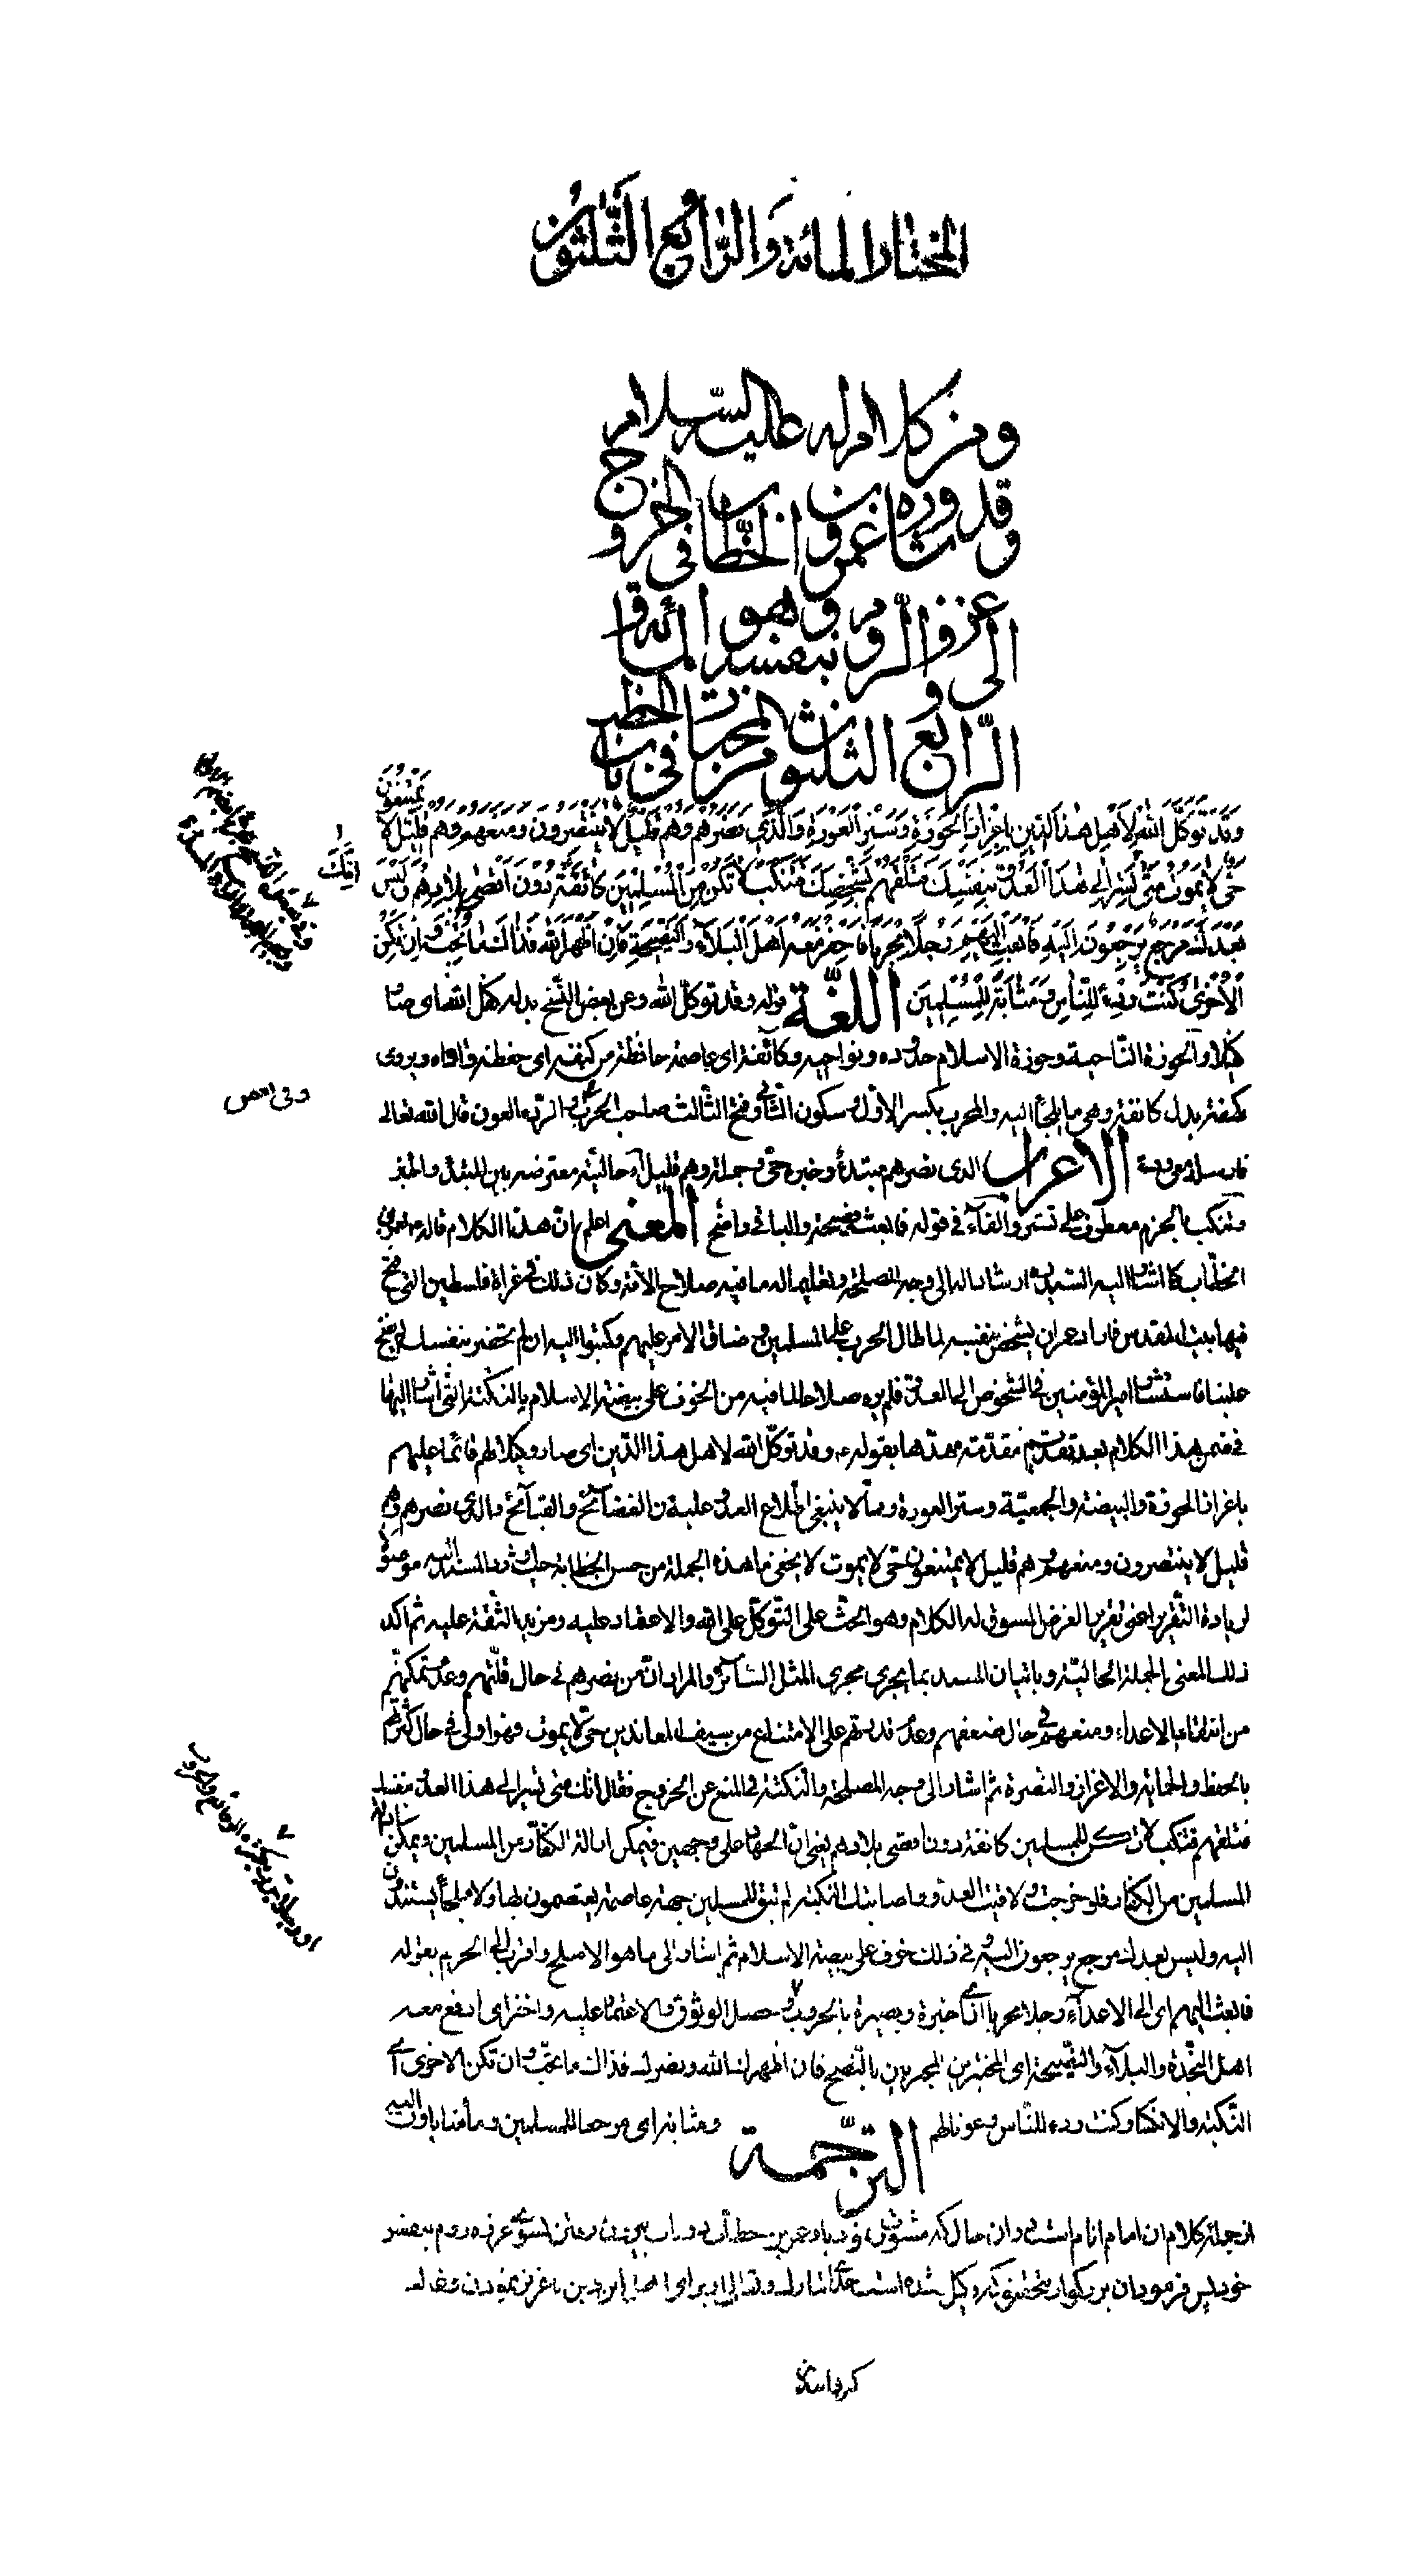 المختار المائة والرابع الثلثون
ومن كلام له عليه السلام
وقد شاوره عمر بن الخطاب في الخروج
الى غزو الروم بنفسه وهو المائة و
الرابع والثلثون من المختار في باب الخطب
وقد توكل الله لاهل هذا الدين باعزاز الحوزة وستر العورة والذي نصرهم وهم قليل لا ينتصرون ومنعهم وهم قليل لا يمتنعون
حي لا يموت انك متى تسر الى هذا العدو بنفسك فتلقهم بشخصك فتنكب لا تكن للمسلمين كانفة دون اقصى بلادهم وليس
بعدك مرجع يرجعون اليه فابعث اليهم رجلا محربا واحفز معه اهل البلاء والنصيحة فان اظهر الله فذاك ما تحب وان تكن
الاخرى كنت ردء للناس ومثابة للمسلمين اللغة قوله وقد توكل الله وعن بعض النسخ بدله كفل الله اى صار
كفيلا والحوزة الناحية وحوزة الاسلام حدوده ونواحيه وكانفة اى عاصمة حافظة من كنفه اى حفظه واواه ويروى
كهفة بدل كانفة وهى ما يلجأ اليه والمحرب بكسر الاول وسكون الثاني وفتح الثالث صاحب الحرب والردء العون قال الله تعالى
فارسله معى ردء الاعراب الذى نصرهم مبتدء وخبره حى وجملة وهم قليل اه حالية معترضة بين المبتدء والخبر
فتنكب بالجزم معطوف على تسر والفاء في قوله فابعث فصيحة والباقى واضح المعنى اعلم ان هذا الكلام قاله لعمر بن
الخطاب كما اشار اليه السيد ره ارشادا له الى وجه المصلحة وتعليما له ما فيه صلاح الامة وكان ذلك فى غزاة فلسطين التى فتح
فيها بيت المقدس فاراد عمر ان يشخص بنفسه لما طال الحرب على المسلمين وضاق الامر عليهم وكتبوا اليه ان لم تحضر بنفسك لم يفتح
علينا فاستشار امير المؤمنين في الشخوص الى العدو فلم يره صلاحا لما فيه من الخوف على بيضة الاسلام بالنكتة التى اشار اليها
في ضمن هذا الكلام بعد تقديم مقدمة مهدها بقوله وقد توكل الله لاهل هذا الدين اى صار وكيلا لهم قائما عليهم
باعزاز الحوزة والبيضة والجمعية وستر العورة ومالا ينبغى اطلاع العدو عليه من الفضائح والقبائح والذى نصرهم وهم
قليل لا ينتصرون ومنعهم وهم قليل لا يمتنعون حى لا يموت لا يخفى ما هذه الجملة من حسن الخطابة حيث اورد المسند اليه موصولا
لزيادة التقرير اعنى تقرير الغرض المسوق له الكلام وهو الحث على التوكل على الله والاعتماد عليه ومزيد الثقة عليه ثم اكد
ذلك المعنى بالجملة الحالية وباتيان المسند بما يجرى مجرى المثل السائر والمراد ان من نصرهم فى حال قلتهم وعدم تمكنهم
من انتقام الاعداء ومنعهم فى حال ضعفهم وعدم قدرتهم على الامتناع من سيف المعاندين حى لا يموت فهو اولى فى حال كثرتهم
بالحفظ والحماية والاعزاز والنصرة ثم اشار الى وجه المصلحة والنكتة فى المنع عن الخروج فقال انك متى تسر الى هذا العدو بنفسك
فتلقهم فتنكب لا تكن للمسلمين كانفة دون اقصى بلادهم يعنى ان الجهاد على وجهين فيمكن ادالة الكفار من المسلمين ويمكن ادالة
المسلمين من الكفار فلو خرجت ولاقيت العدو واصابتك النكبة لم تبق للمسلمين جهة عاصمة يعتصمون بها ولا ملجأ يستندون
اليه وليس بعدك مرجع يرجعون اليه وفى ذلك خوف على بيضة الاسلام ثم اشار الى ما هو الاصلح واقرب الى الحزم بقوله
فابعث اليهم اى الى الاعداء رجلا محربا اى ذا خبرة وبصيرة بالحروب وحصل الوثوق والاعتماد عليه واحفز اى ادفع معه
اهل النجدة والبلاء والنصيحة اى المختبرين المجربين بالنصح فان اظهرك الله ونصرك فذاك ما تحب وان تكن الاخرى اى
النكبة والانكسار كنت ردء للناس وعونا لهم ومثابة اى مرجعا للمسلمين ومأمنا يأوون اليه
الترجمة
از جمله كلام ان امام انام است در ان حال كه مشورت نمود با او عمر بن خطاب در باب بيرون رفتن بسوى غزوه روم بنفس
خود پس فرمود ان بزركوار بتحقيق كه وكيل شده است خداى تبارك وتعالى از براى اهل اين دين باعزيز نمودن
كرداندن